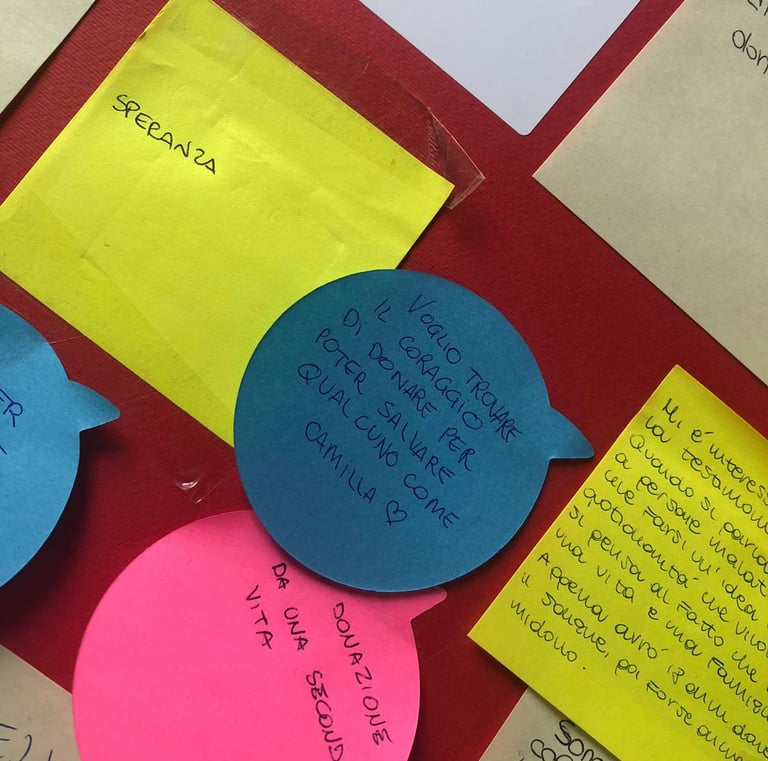 SPERANZA
VOGLIO TROVARE
IL CORAGGIO
DI DONARE PER
POTER SALVARE
QUALCUNO COME
CAMILLA ♡
DONAZIONE
DA UNA SECOND
VITA
Mi é interess
la testimon
Quando si parla
a persone malat
che farsi un'idea
quotidianità che vivo
si pensa al fatto che
una vita e una famigl
Appena avrò 18 anni don
il sangue, poi forse
midollo.